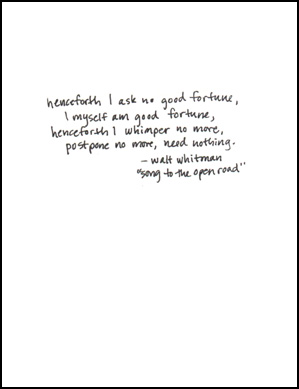 henceforth I ask no good fortune,
I myself am good fortune,
henceforth I whimper no more,
postpone no more, need nothing.
- walt whitman
"song to the open road"